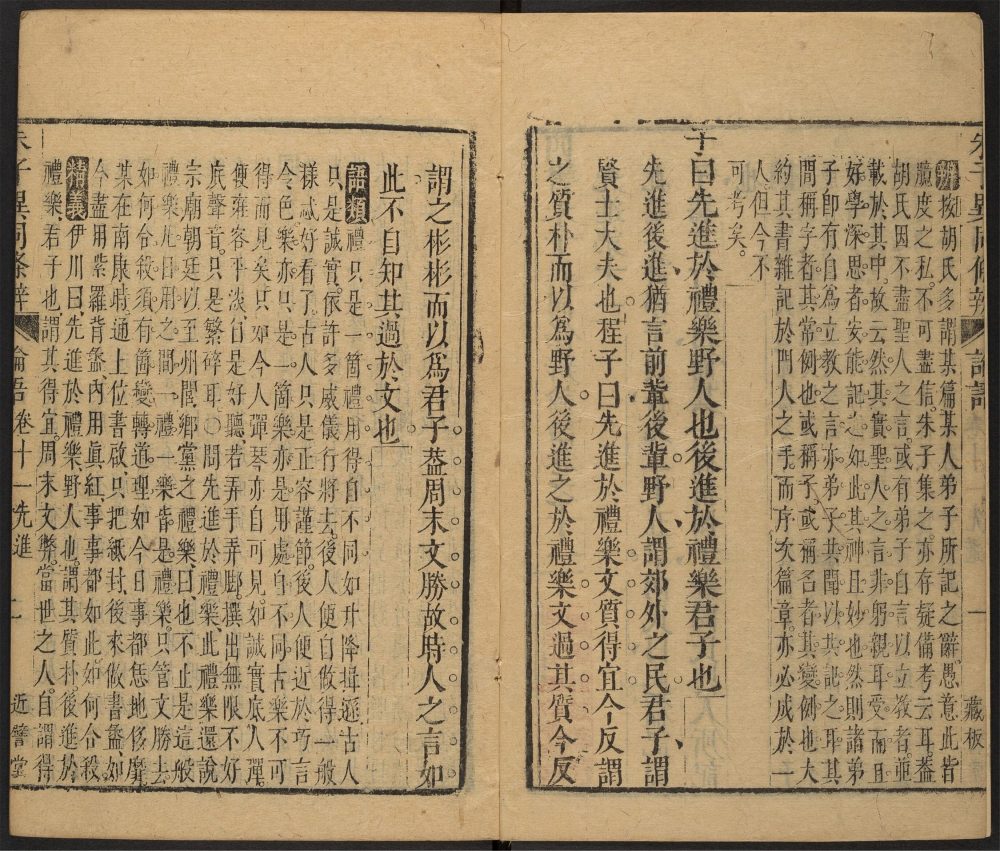 朱子異同條辨 論語 一 藏板
辨按胡氏多謂某篇某人弟子所記之辭愚意此皆
臆度之私不可盡信朱子集之亦存疑備考云耳葢
胡氏因不盡聖人之言或有弟子自言以立教者亟
載於其中故云然其實聖人之言非躬親耳受而且
好學深思者安能記之如此其神且妙也然則諸弟
子即有自爲立教之言亦弟子共聞以共記之耳其
間稱字者其常例也或稱子或稱名者其變例也大
約其書雜記於門人之手而序次篇章亦必成於一
人但今不
可考矣
子曰先進於禮樂野人也後進於禮樂君子也
先進後進猶言前輩後輩野人謂郊外之民君子謂
賢士大夫也程子曰先進於禮樂文質得宜今反謂
之質朴而以爲野人後進之於禮樂文過其質今反
謂之彬彬而以爲君子葢周末文勝故時人之言如
此不自知其過於文也
語類禮只是一箇禮用得自不同如升降揖遜古人
只是誠實依許多威儀行將去後人便自做得一般
樣忒好看了古人只是正容謹節後人便近於巧言
令色樂亦只是一箇樂亦是用處自不同古樂不可
得而見矣只如今人彈琴亦自可見如誠實底人彈
便雍容平淡自是好聽若弄手弄腳撰出無限不好
底聲音只是繁碎耳○問先進於禮樂此禮樂還說
宗廟朝廷以至州閭鄉黨之禮樂曰也不止是這般
禮樂凡日用之間一禮一樂皆是禮樂只管文勝去
如何合殺須有箇變轉道理如今日事都恁地侈靡
某在南康時通上位書啟只把紙封後來做書盝如
今盡用紫羅背盝內用眞紅事事都如此如何合殺
精義伊川曰先進於禮樂野人也謂其質朴後進於
禮樂君子也謂其得宜周末文弊當世之人自謂得
朱子異同條辨 論語卷十一先進 二 近譬堂